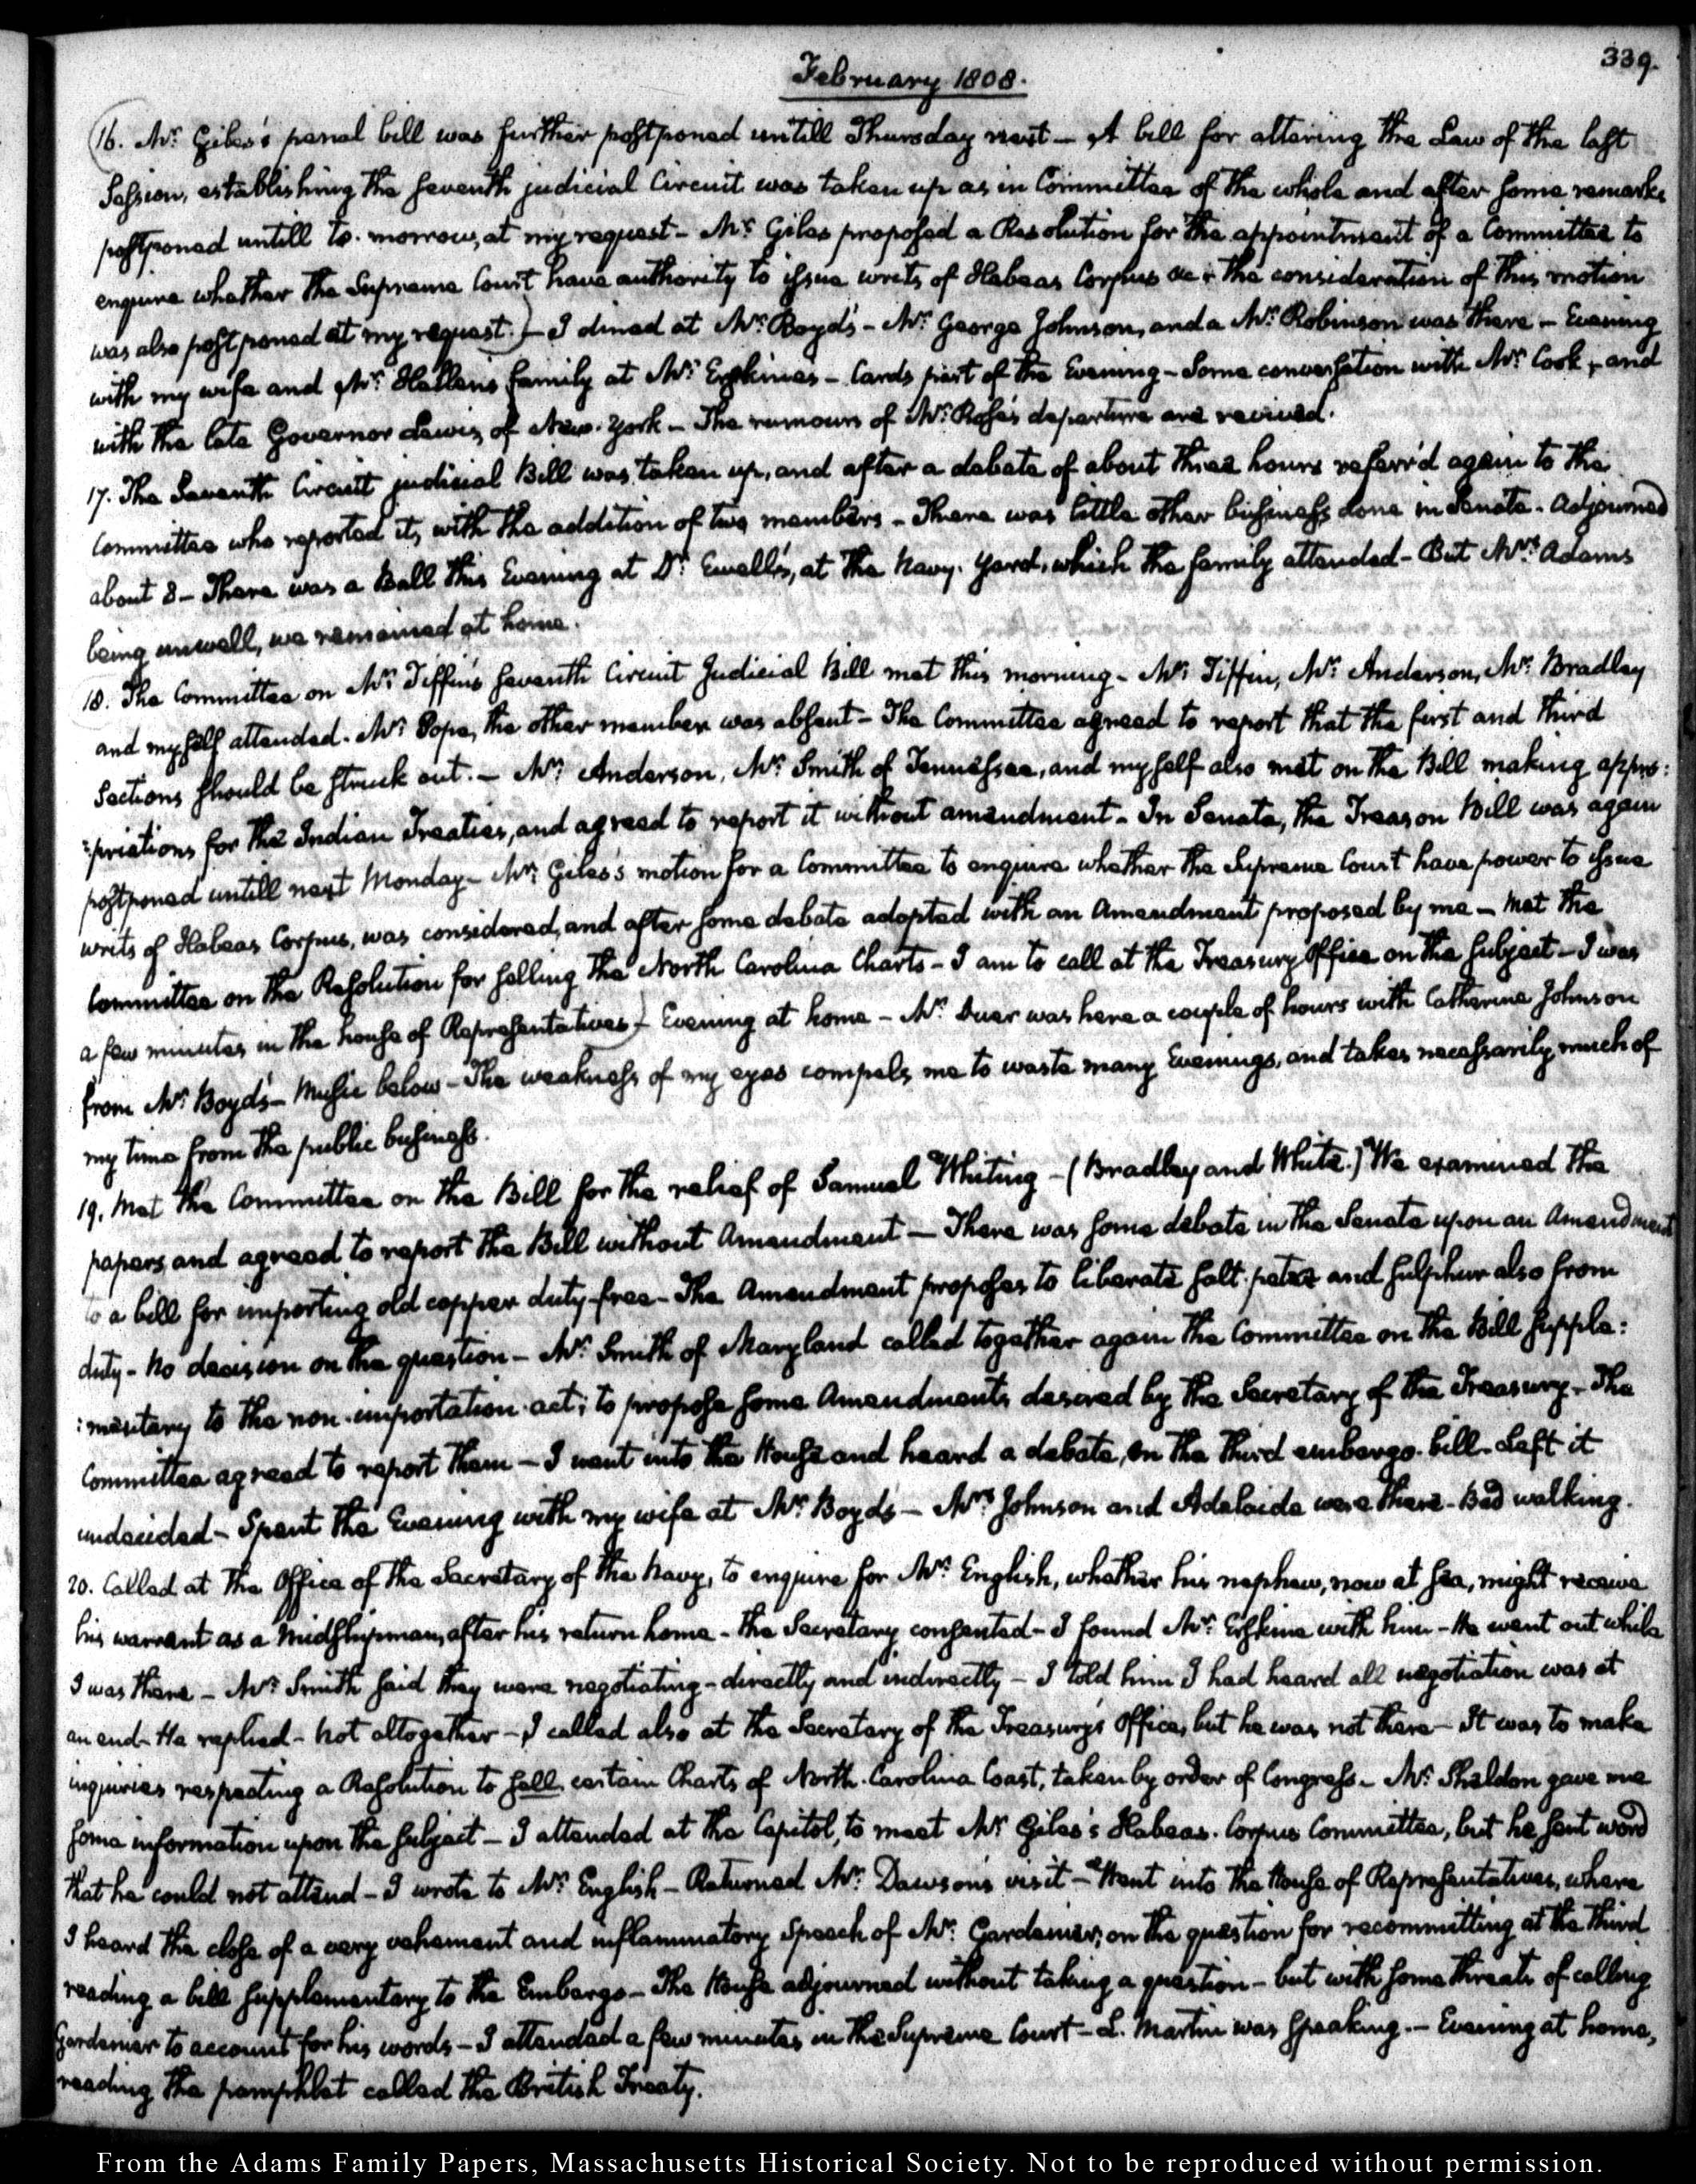 339.
February 1808.
16. Mr. Giles's penal bill was further postponed untill Thursday next — A bill for altering the Law of the last
Session, establishing the seventh judicial Circuit was taken up as in Committee of the whole and after some remarks
postponed untill to-morrow, at my request — Mr. Giles proposed a Resolution for the appointment of a Committee to
enquire whether the Supreme Court have authority to issue writs of Habeas Corpus &c. the consideration of this motion
was also postponed at my request. — I dined at Mr. Boyd's — Mr. George Johnson, and a Mr. Robinson was there — Evening
with my wife and Mr. Hellens family at Mr. Erskines — Cards part of the Evening — Some conversation with Mr. Cook, and
with the late Governor Lewis, of New-York — The rumours of Mr. Rose's departure are revived.
17. The Seventh Circuit judicial Bill was taken up, and after a debate of about three hours referr'd again to the
Committee who reported it, with the addition of two members — There was little other business done in Senate. Adjourned
about 3 — There was a Ball this Evening at Dr. Ewell's, at the Navy-Yard, which the family attended — But Mrs. Adams
being unwell, we remained at home.
18. The Committee on Mr. Tiffin's seventh Circuit Judicial Bill met this morning — Mr. Tiffin, Mr. Anderson, Mr. Bradley
and myself attended. Mr. Pope, the other member was absent — The Committee agreed to report that the first and third
Sections should be struck out. — Mr. Anderson, Mr. Smith of Tennessee, and myself also met on the Bill making appro:
:priations for the Indian Treaties, and agreed to report it without amendment — In Senate, the Treason Bill was again
postponed untill next Monday — Mr. Giles's motion for a Committee to enquire whether the Supreme Court have power to issue
writs of Habeas Corpus, was considered, and after some debate adopted with an Amendment proposed by me — Met the
Committee on the Resolution for selling the North Carolina Charts — I am to call at the Treasury Office on the subject — I was
a few minutes in the house of Representatives — Evening at home — Mr. Duer was here a couple of hours with Catherine Johnson
from Mr. Boyd's — Music below — The weakness of my eyes compels me to waste many Evenings, and takes necessarily much of
my time from the public business.
19. Met the Committee on the Bill for the relief of Samuel Whiting — (Bradley and White.) We examined the
papers, and agreed to report the Bill without Amendment — There was some debate in the Senate upon an Amendment
to a bill for importing old copper duty-free — The Amendment proposes to liberate salt-petre and sulphur also from
duty — No decision on the question — Mr. Smith of Maryland called together again the Committee on the Bill supple:
:mentary to the non-importation act; to propose some Amendments desired by the Secretary of the Treasury — The
Committee agreed to report them — I went into the House and heard a debate, on the third embargo-bill — Left it
undecided — Spent the Evening with my wife at Mr. Boyd's — Mrs. Johnson and Adelaide were there — Bad walking.
20. Called at the Office of the Secretary of the Navy, to enquire for Mr. English, whether his nephew, now at sea, might receive
his warrant as a Midshipman, after his return home — The Secretary consented — I found Mr. Erskine with him — He went out while
I was there — Mr. Smith said they were negotiating — directly and indirectly — I told him I had heard all negotiation was at
an end — He replied — Not altogether — I called also at the Secretary of the Treasury's Office, but he was not there — It was to make
inquiries respecting a Resolution to sell certain Charts of North-Carolina Coast, taken by order of Congress — Mr. Sheldon gave me
some information upon the subject — I attended at the Capitol, to meet Mr. Giles's Habeas-Corpus Committee, but he sent word
that he could not attend — I wrote to Mr. English — Returned Mr. Dawson's visit — Went into the House of Representatives, where
I heard the close of a very vehement and inflammatory Speech of Mr. Gardenier, on the question for recommitting at the third
reading a bill supplementary to the Embargo — The House adjourned without taking a question — but with some threats of calling
Gardenier to account for his words — I attended a few minutes in the Supreme Court — L. Martin was speaking. — Evening at home,
reading the pamphlet called the British Treaty.
From the Adams Family Papers, Massachusetts Historical Society. Not to be reproduced without permission.